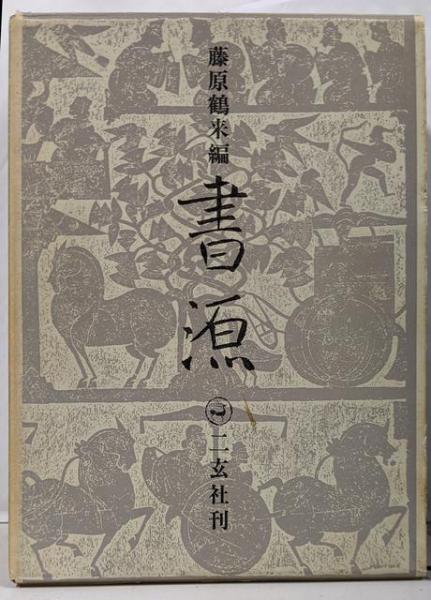 藤原鶴来編
書源
二玄社刊